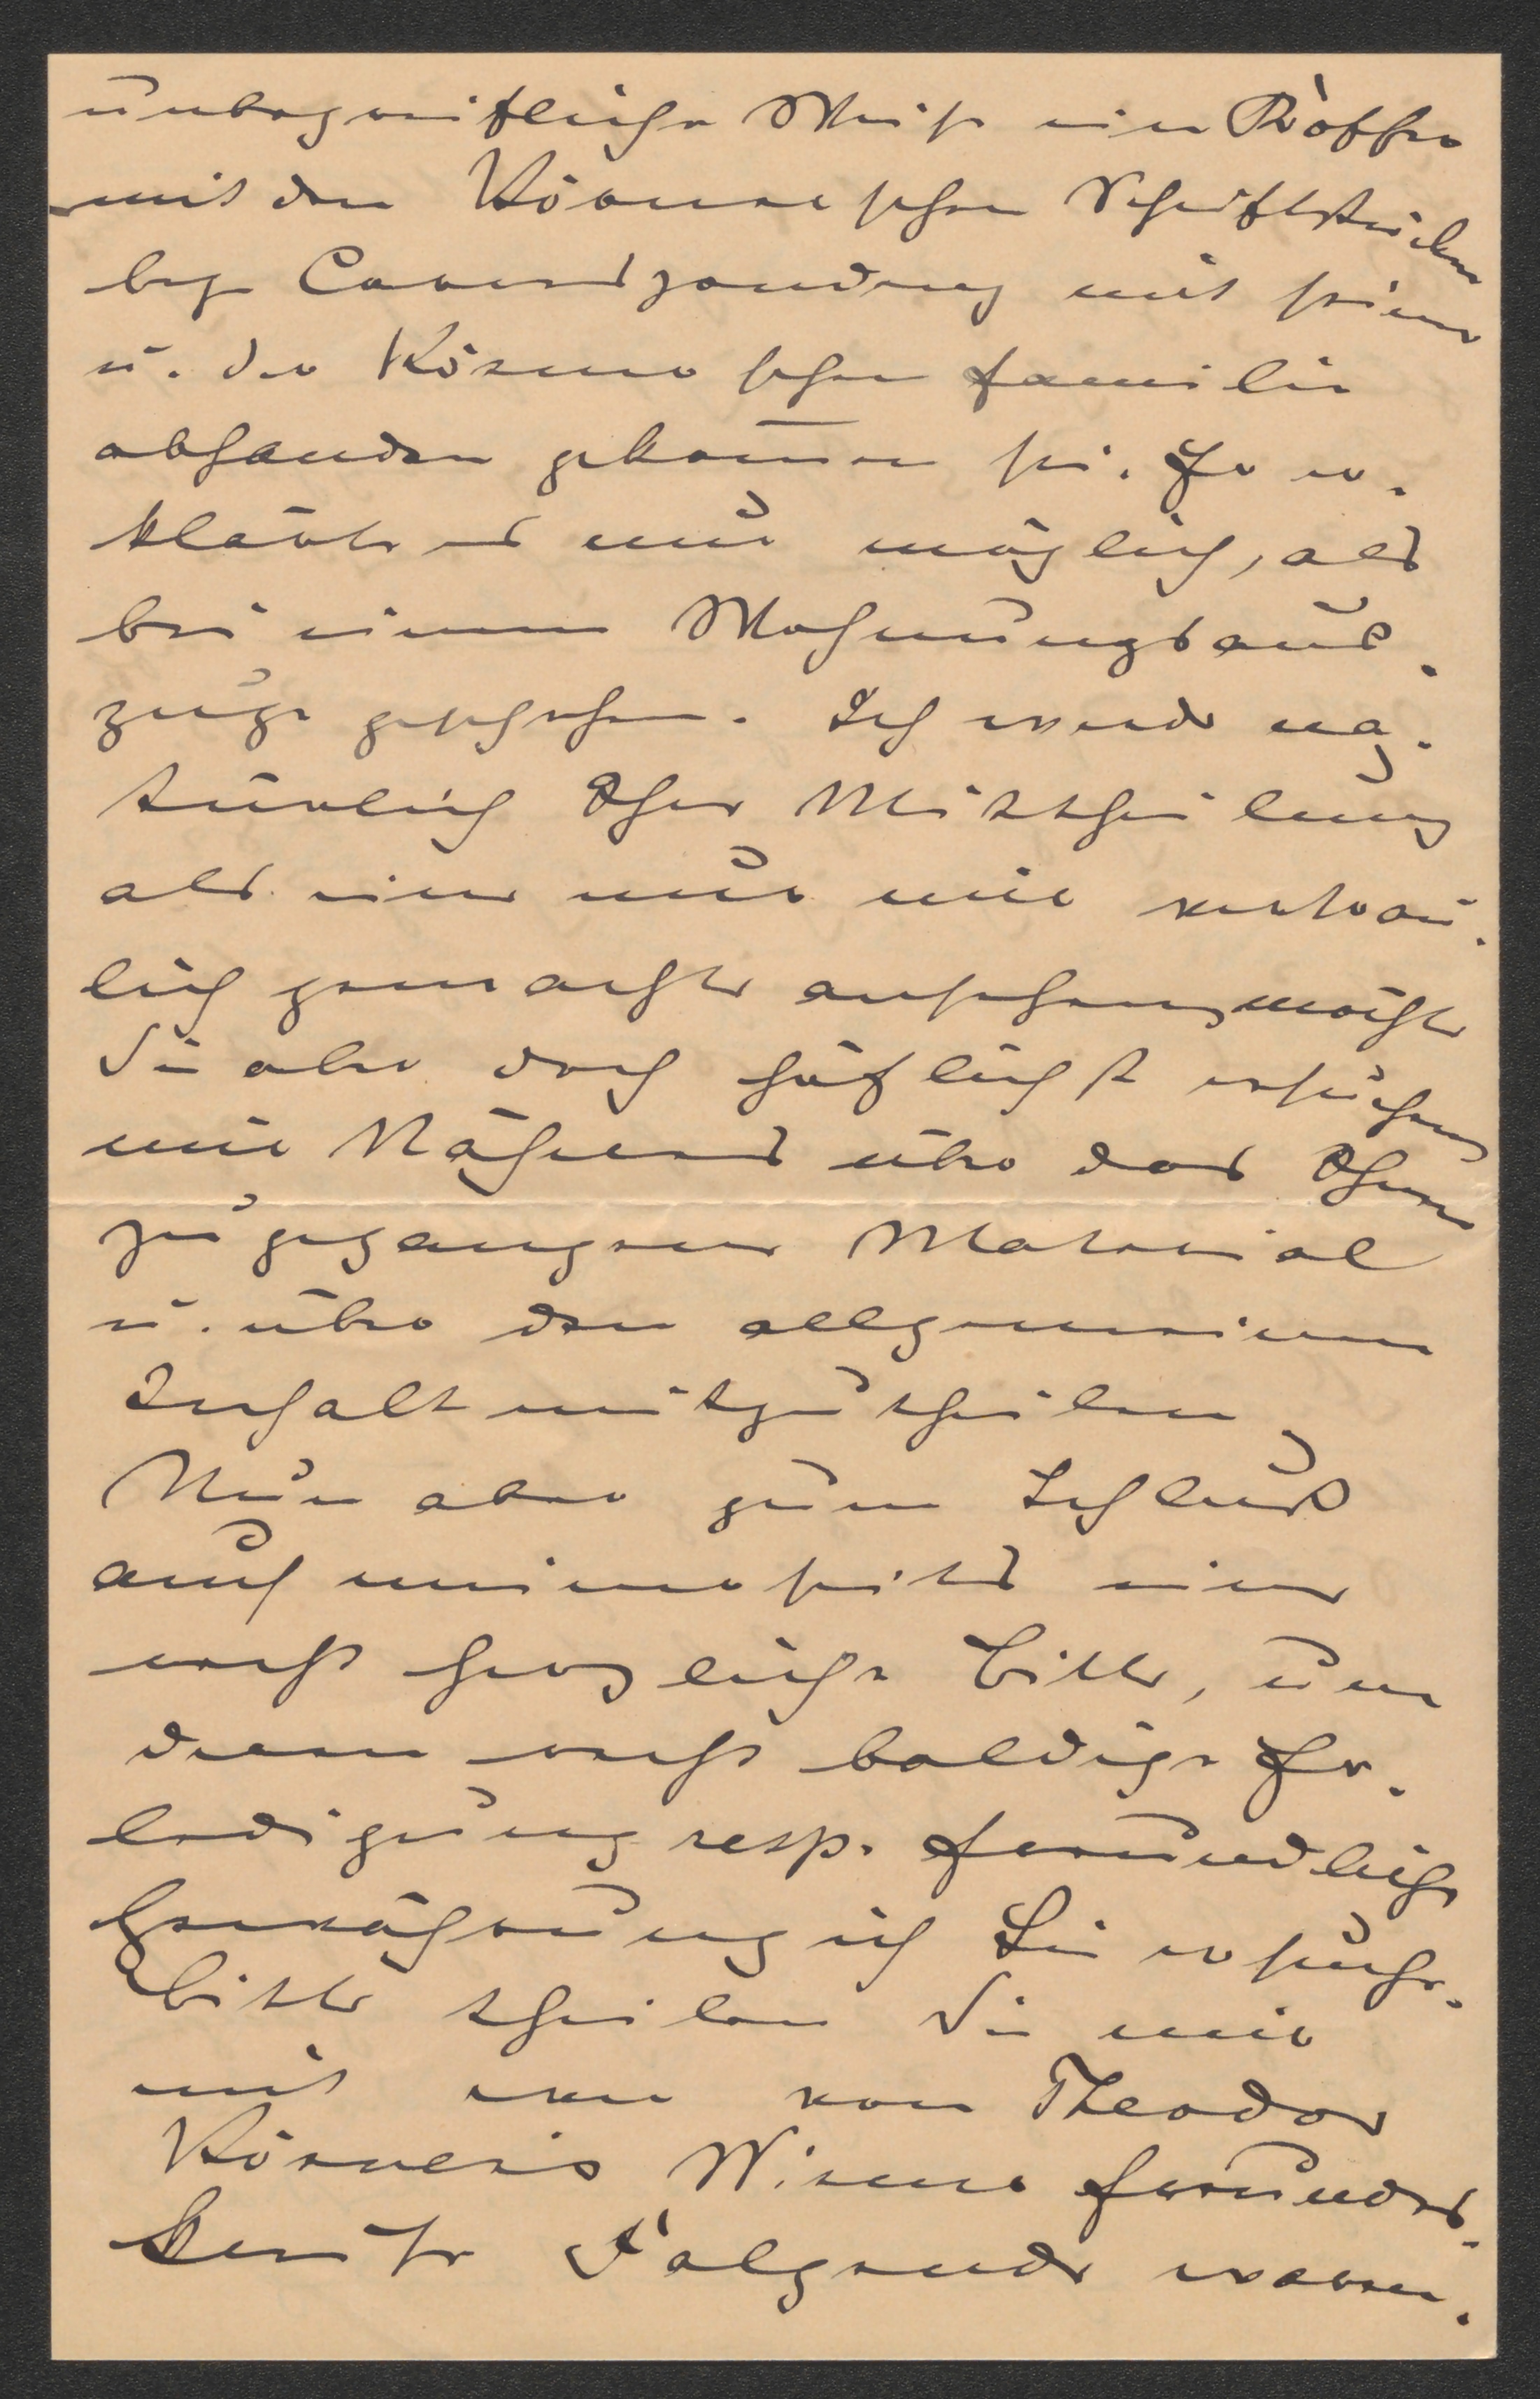 unbegreifliche Weise ein Koffer
mit den Körnerschen Schriftstücken
bez. Correspondenz mit seiner
u. der Körnerschen Familie
abhanden gekom̅en sei. Er er-
klärte es nur möglich, als
bei einem Wohnungsaus-
zuge geschehen. Ich werde na-
türlich Ihre Mittheilung
als eine nur mir vertrau-
lich gemachte ansehen, möchte
Sie aber doch höflichst ersuchen,
mir Näheres über das Ihnen
zugegangene Material
u. über den allgemeinen
Inhalt mitzutheilen,
Nun aber zum Schluß
auch meinerseits eine
recht herzliche Bitte, um
deren recht baldige Er-
ledigung resp. freundliche
Gewährung ich Sie ersuche.
Bitte theilen Sie mir
mit wer von Theodor
Körners Wiener Freundes-
kreise Folgende waren.